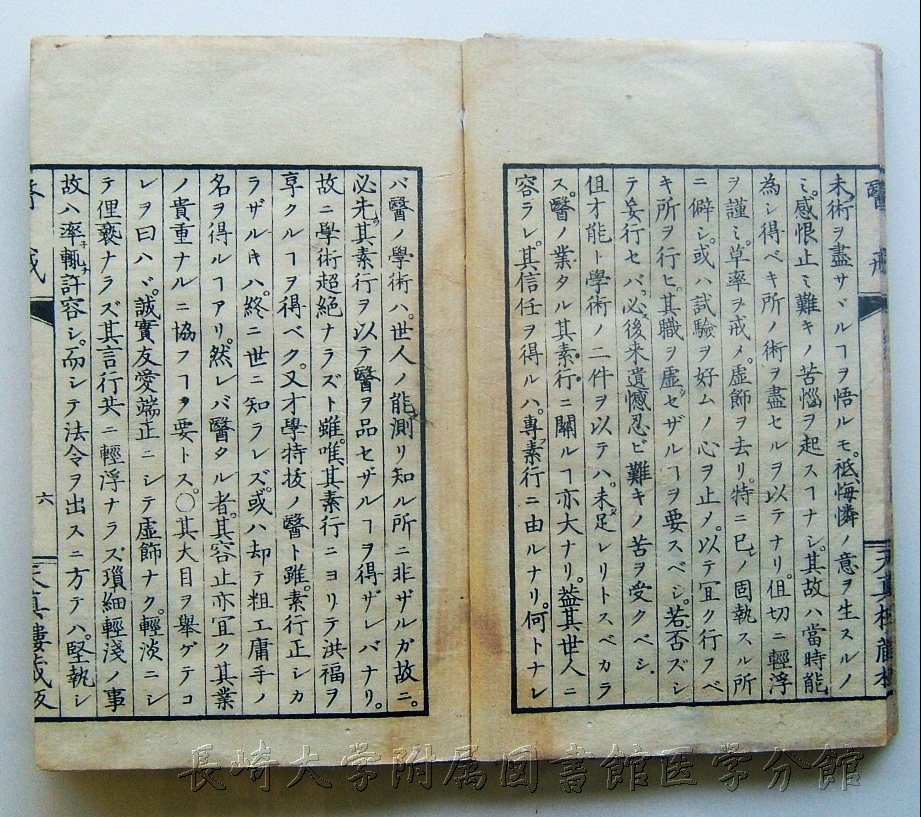 醫戒
天真樓蔵板
未術ヲ盡サヾルヿヲ悟ルモ。祗悔憐ノ意ヲ生スルノ
ミ。感恨止ミ難キノ苦惱ヲ起スヿナシ。其故ハ當時能
為シ得ベキ所ノ術ヲ盡セルヲ以テナリ。但切ニ輕浮
ヲ謹ミ。草率ヲ戒メ。虚飾ヲ去リ。特ニ己ノ固執スル所
ニ僻シ。或ハ試驗ヲ好ムノ心ヲ止メ。以テ宜ク行フベ
キ所ヲ行ヒ。其職ヲ虚セザルヿヲ要スベシ。若否ズシ
テ妄行セバ。必後来遺憾忍ビ難キノ苦ヲ受クベシ。
但才能ト學術ノ二件ヲ以テハ。未足レリトスベカラ
ス。醫ノ業タル其素行ニ關ルヿ亦大ナリ。葢其世人ニ
容ラレ。其信任ヲ得ルハ。專素行ニ由ルナリ。何トナレ
バ醫ノ學術ハ。世人ノ能測リ知ル所ニ非ザルガ故ニ。
必先其素行ヲ以テ醫ヲ品セザルヿヲ得ザレバナリ。
故ニ學術超絶ナラズト雖。唯其素行ニヨリテ洪福ヲ
享クルヿヲ得ベク。又才學特抜ノ醫ト雖。素行正シカ
ラザルキハ。終ニ世ニ知ラレズ。或ハ却テ粗工庸手ノ
名ヲ得ルヿアリ。然レバ醫タル者。其容止亦宜ク其業
ノ貴重ナルニ協フヿヲ要トス。〇其大目ヲ舉ゲテコ
レヲ曰ハヾ。誠實友愛端正ニシテ虚飾ナク。輕淡ニシ
テ俚褻ナラズ其言行共ニ輕浮ナラズ。瑣細輕淺ノ事
故ハ率輒許容シ。而シテ法令ヲ出スニ方テハ。堅執シ
醫戒
六
天真樓蔵板
長崎大学附属図書館医学分館